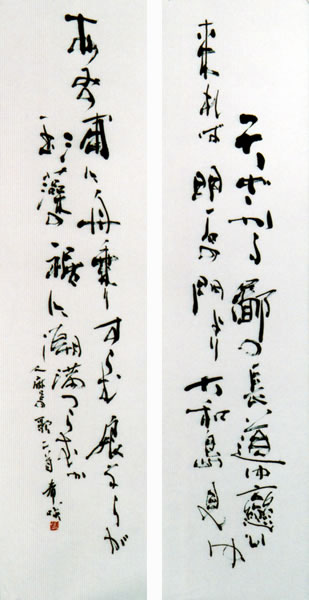 天ざかる鄙の長道ゆ戀ひ
来れば明石の門より大和島見ゆ
浦に舟乗りすらむ娘子らが
玉藻の裾に潮満つらむか
人麻呂歌二首